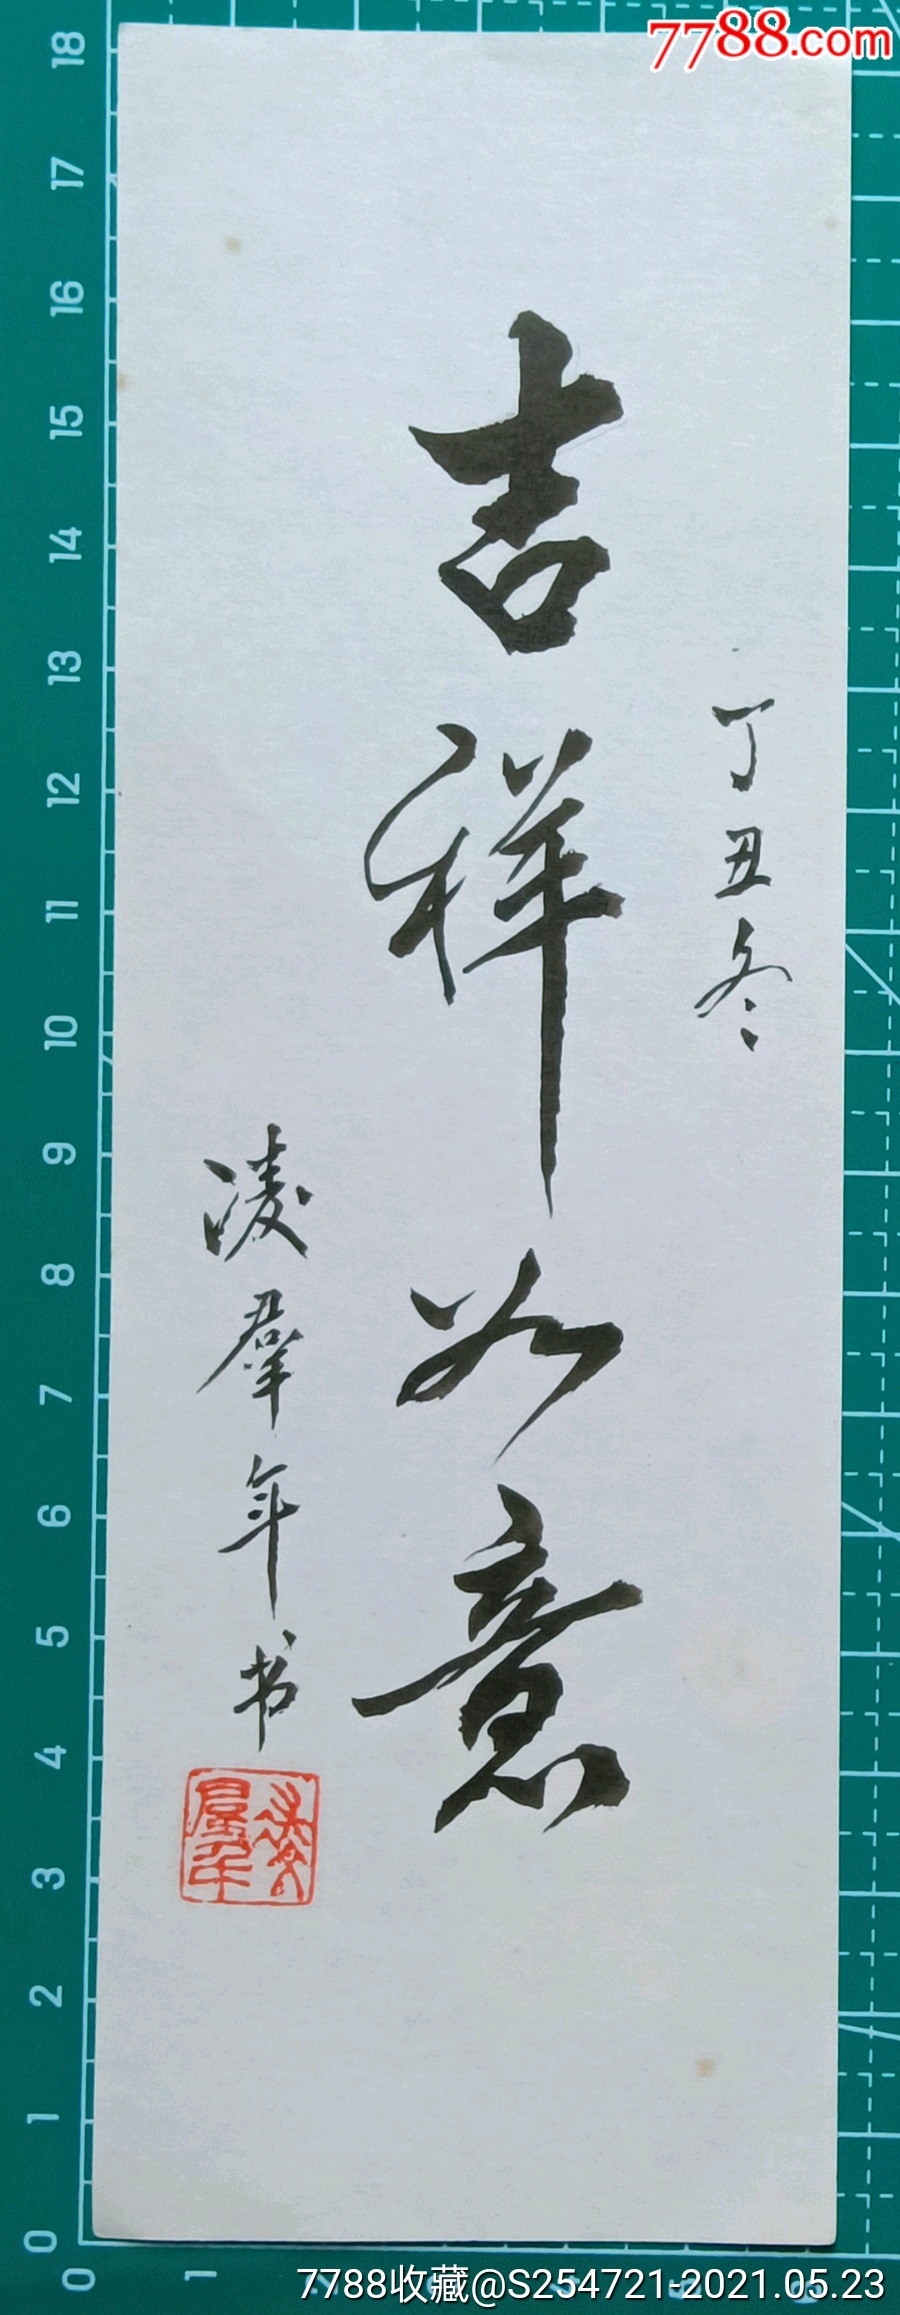 7788.com
丁丑冬
吉祥如意
凌群年书
18
17
16
15
14
13
12
11
10
9
8
7
6
5
4
3
2
1
0
0
1
7788收藏@S254721-2021.05.23